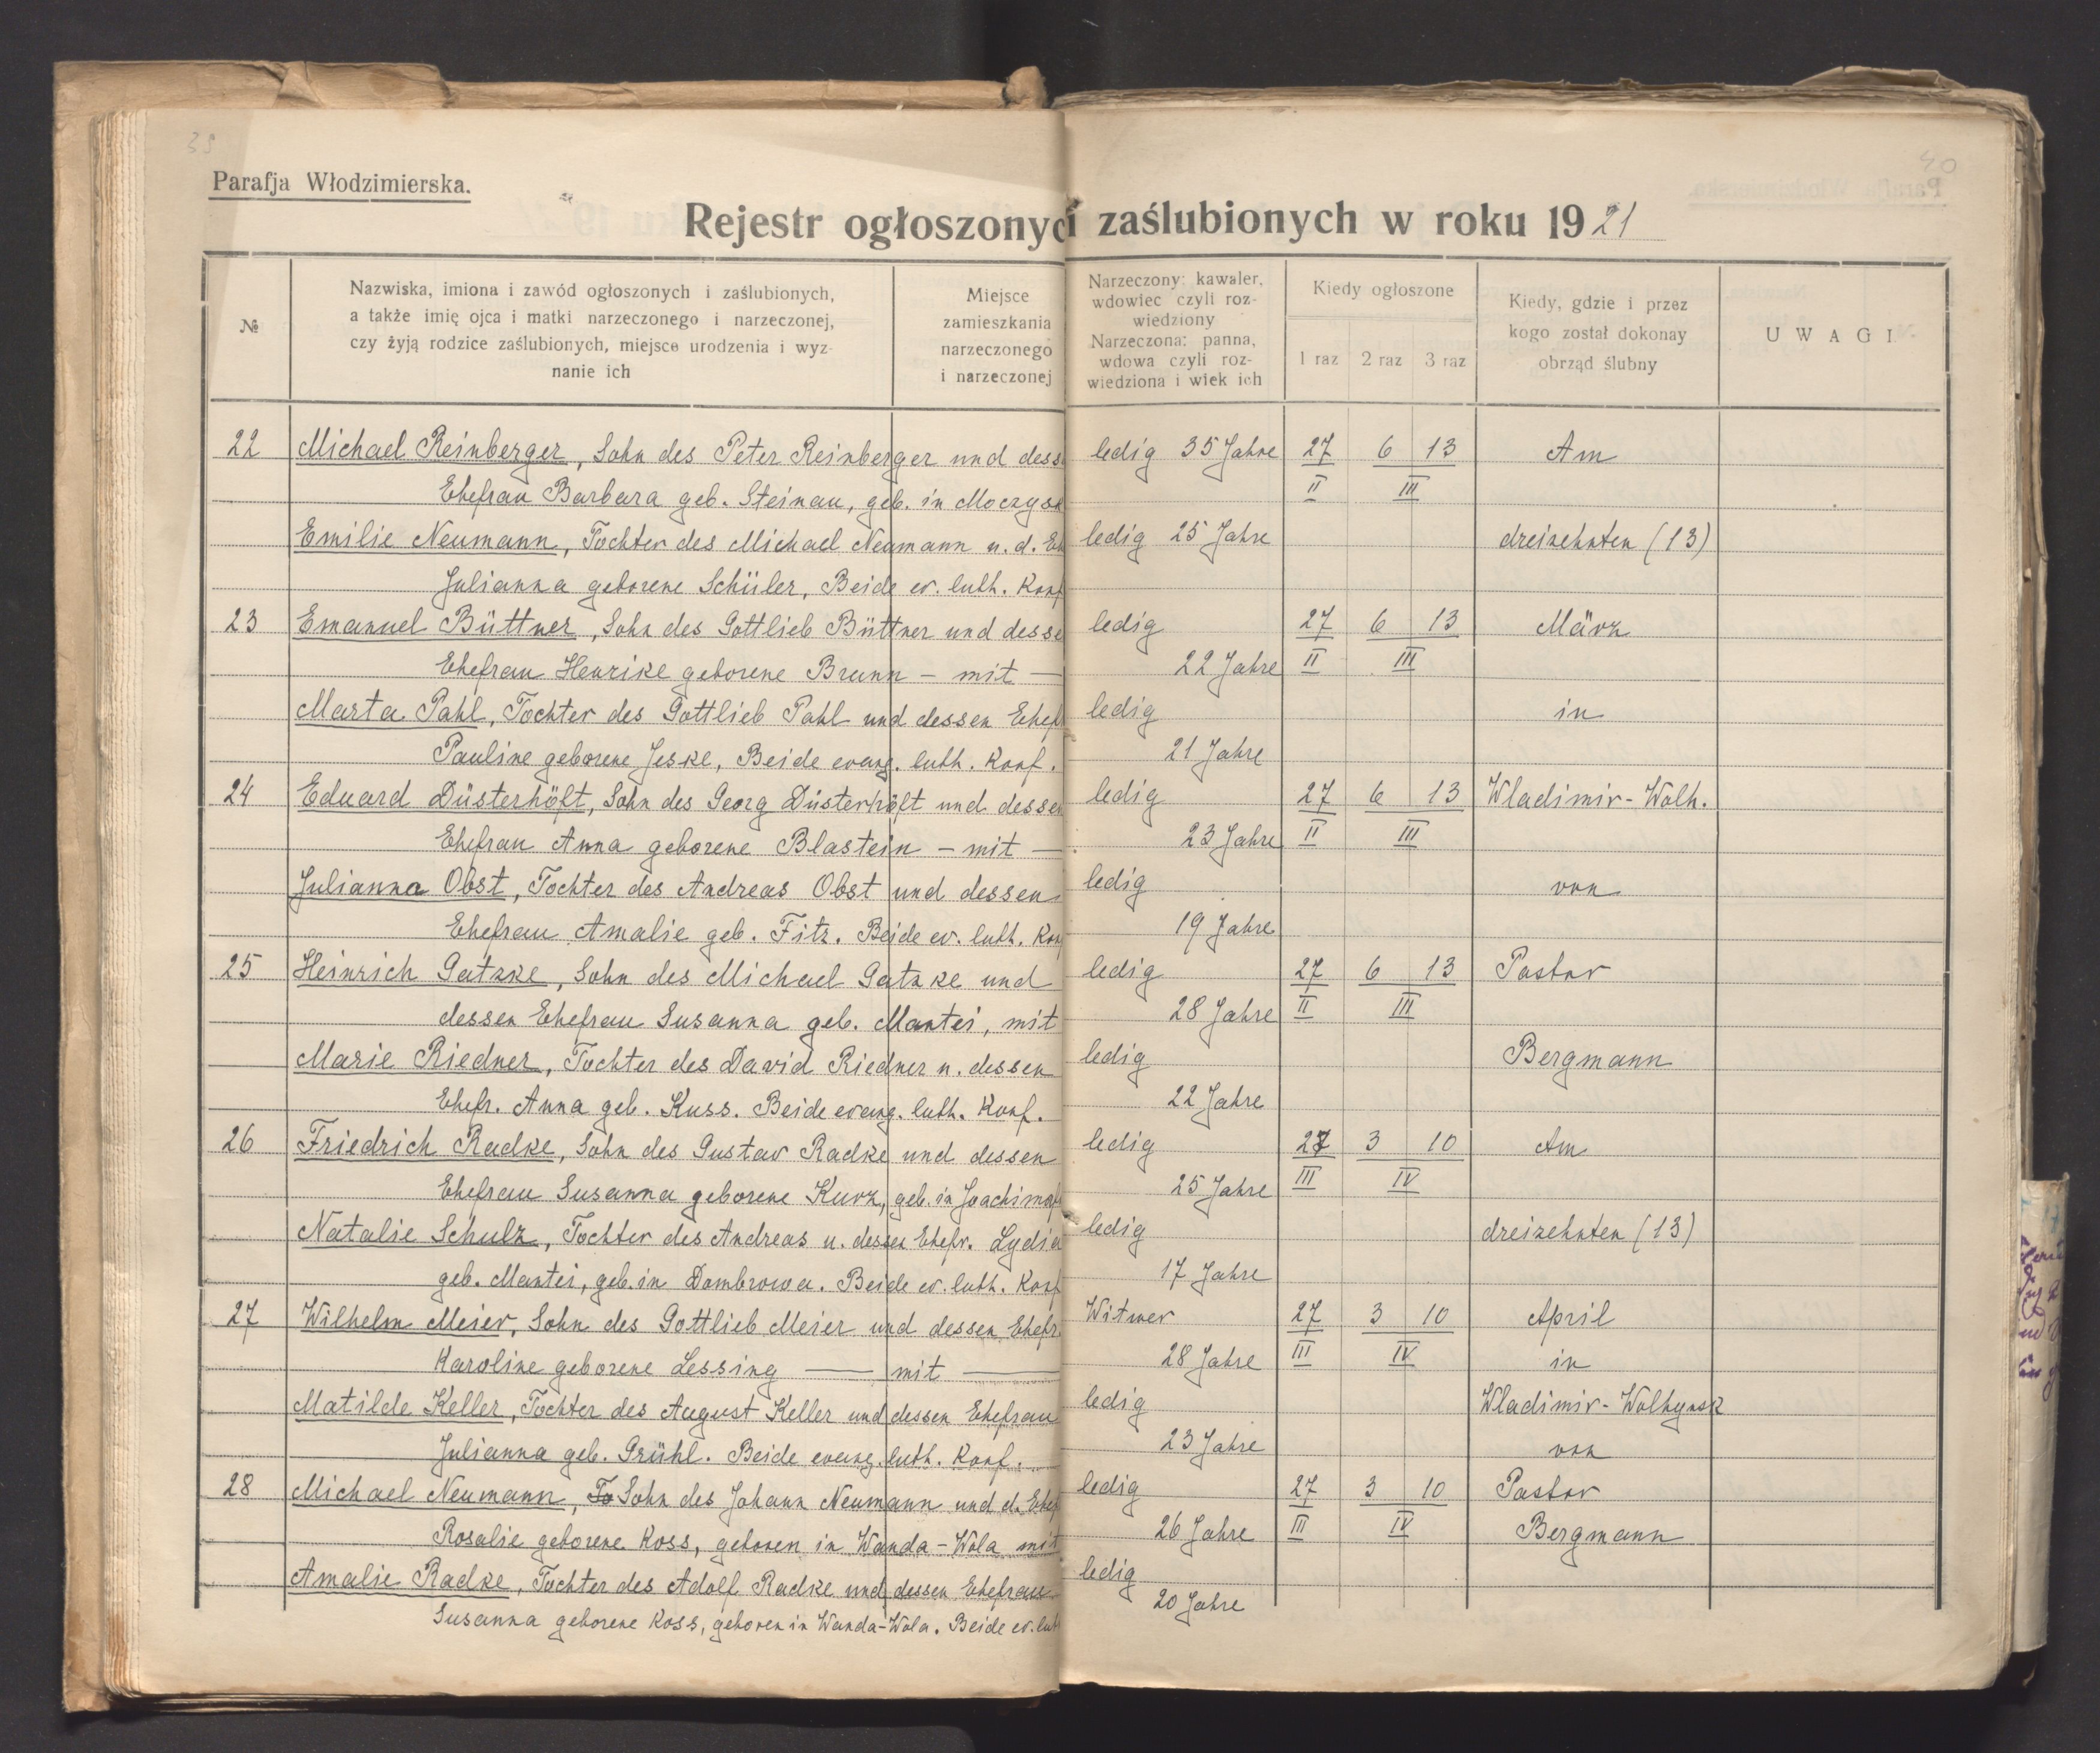 39
40
Parafja Włodzimierska.
Rejestr ogłoszonyc i zaślubionych w roku 1921
№
Nazwiska, imiona i zawód ogłoszonych i zaślubionych,
a także imię ojca i matki narzeczonego i narzeczonej,
czy żyją rodzice zaślubionych, miejsce urodzenia i wyz-
nanie ich
Miejsce
zamieszkania
narzeczonego
i narzeczonej
Narzeczony: kawaler,
wdowiec czyli roz-
wiedziony
Narzeczona: panna,
wdowa czyli roz-
wiedziona i wiek ich
Kiedy ogłoszone
1 raz 2 raz 3 raz
Kiedy, gdzie i przez
kogo został dokonay
obrząd ślubny
UWAGI
22 Michael Reinberger, Sohn des Peter Reinberger und dess ledig 35 Jahre 27 6 13 Am
Ehefrau Barbara geb. Steinau, geb. in Moczysk II III
Emilie Neumann, Tochter des Michael Neumann u. d. Eh ledig 25 Jahre dreizehnten (13)
Julianna geborene Schüler, Beide ev. luth. Konf
23 Emanuel Büttner, Sohn des Gottlieb Büttner und desse ledig 27 6 13 März
Ehefrau Henrike geborene Brunn – mit — 22 Jahre II III
Marta Pahl, Tochter des Gottlieb Pahl und dessen Ehef ledig in
Pauline geborene Jeske, Beide evang. luth. Konf. 21 Jahre
24 Eduard Düsterhöft, Sohn des Georg Düsterhöft und dessen ledig 27 6 13 Wladimir-Wolh.
Ehefrau Anna geborene Blastein – mit — 23 Jahre II III
Julianna Obst, Tochter des Andreas Obst und dessen ledig von
Ehefrau Amalie geb. Fitz. Beide ev. luth. Konf 19 Jahre
25 Heinrich Gatzke, Sohn des Michael Gatzke und ledig 27 6 13 Pastor
dessen Ehefrau Susanna geb. Mantei, mit 28 Jahre II III
Marie Riedner, Tochter des David Riedner u. dessen ledig Bergmann
Ehefr. Anna geb. Kuss. Beide evang. luth. Konf. 22 Jahre
26 Friedrich Radke, Sohn des Gustav Radke und dessen ledig 27 3 10 Am
Ehefrau Susanna geborene Kurz, geb. in Joachimof 25 Jahre III IV
Natalie Schulz, Tochter des Andreas u. dessen Ehefr. Lydia ledig dreizehnten (13)
geb. Mantei, geb. in Dombrowa. Beide ev. luth. Konf 17 Jahre
27 Wilhelm Meier, Sohn des Gottlieb Meier und dessen Ehefr. Witwer 27 3 10 April
Karoline geborene Lessing — mit — 28 Jahre III IV in
Matilde Keller, Tochter des August Keller und dessen Ehefrau ledig Wladimir-Wolhynsk
Julianna geb. Grühl. Beide evang. luth. Konf. 23 Jahre von
28 Michael Neumann, To Sohn des Johann Neumann und d. Ehef ledig 27 3 10 Pastor
Rosalie geborene Koss, geboren in Wanda-Wola mit 26 Jahre III IV Bergmann
Amalie Radke, Tochter des Adolf Radke und dessen Ehefrau ledig
Susanna geborene Koss, geboren in Wanda-Wola. Beide ev. lut 20 Jahre